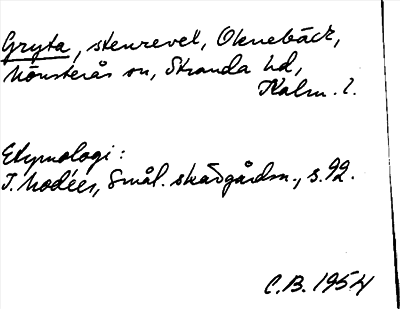 Gryta, stenrevel, Oknebäck,
Mönsterås sn, Stranda hd,
Kalm. l.
Etymologi:
T. Modéer, Smål. skärgårdsn., s. 92.
C.B. 1954